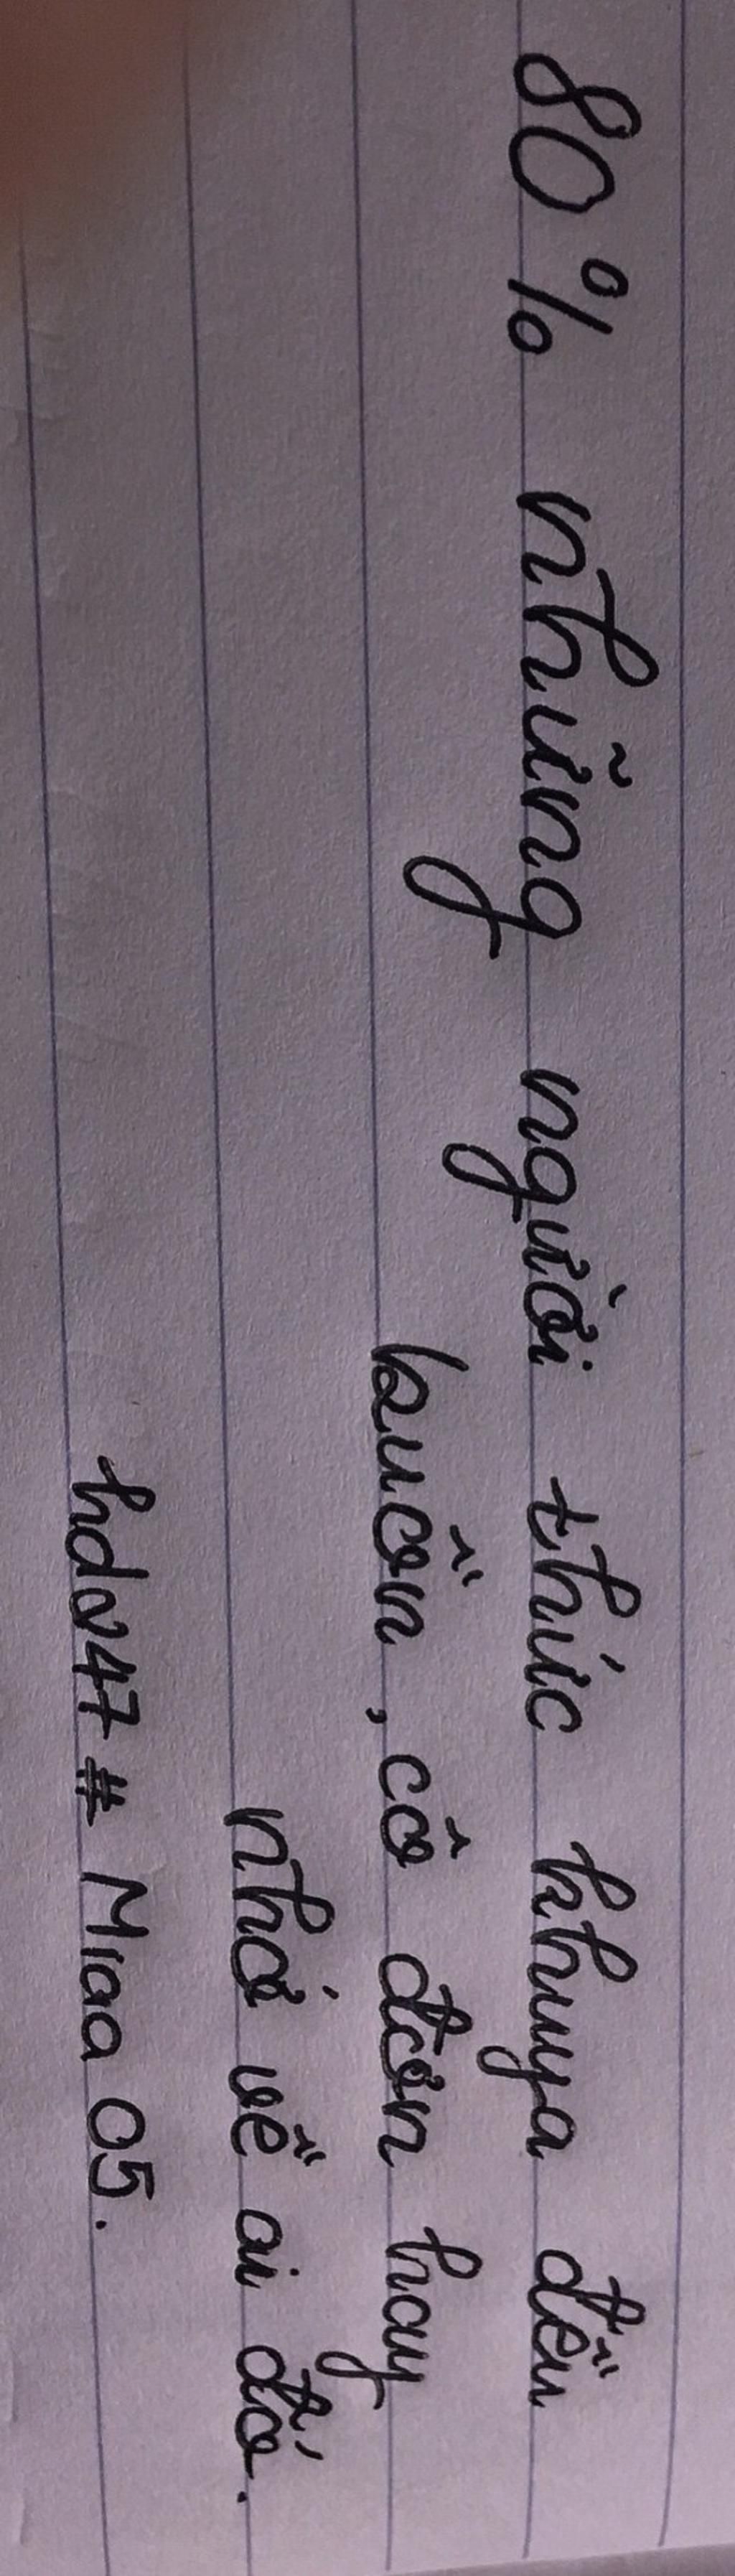 80% những người thức khuya đều
buồn, cô đơn hay
nhớ về ai đó.
hdv47# Miaa 05.